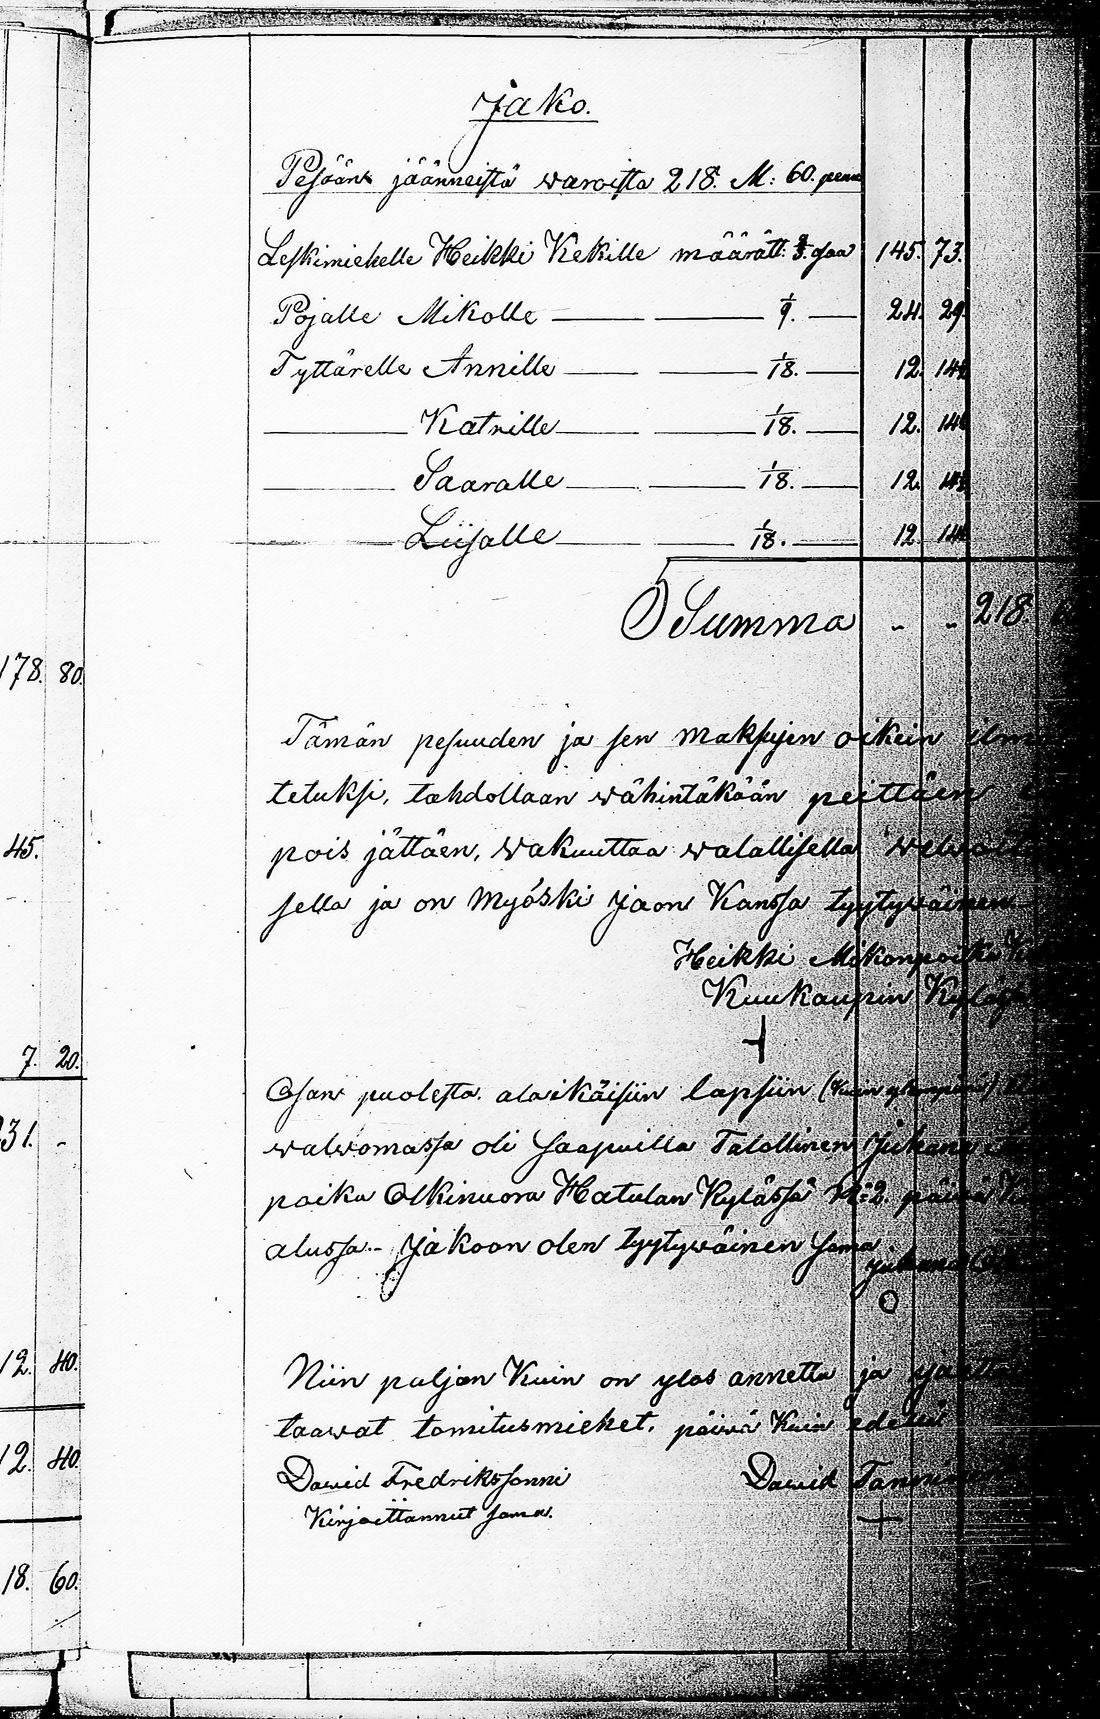 Jako.
Pesään jäänneistä waroista 218. M: 60. penn
Leskimiehelle Heikki Kekille määrätt: 2/3. osaa 145. 73.
Pojalle Mikolle 1/9. 24. 29
Tyttärelle Annille 1/18. 12. 14½
Katrille 1/18. 12. 14½
Saaralle 1/18. 12. 14½
Liisalle 1/18. 12. 14½
Summa „ „ 218.
178. 80.
Tämän pesuuden ja sen maksujen oikein ilm
tetuksi, tahdollaan wähintäkään peittäen
45. pois jättäen, wakuuttaa walallisella
sella ja on myöski jaon Kanssa tyytywäinen
Heikki Mikonpoika
Kuukaupin Kylästä
7. 20.
Osan puolesta alaikäisiin lapsiin (kuin
31. - walwomassa oli saapuilla Talollinen Juhana
poika Olkinuora Hatulan Kylässä N:o 2. päivä
alussa.- Jakoon olen tyytywäinen sama
Juhana
12. 40. Niin paljon Kuin on ylös annettu ja
taawat tomitusmiehet, päivä Kuin edellä
12. 40. Dawid Fredrikssonni Dawid
Kirjoittannut sama.
18. 60.